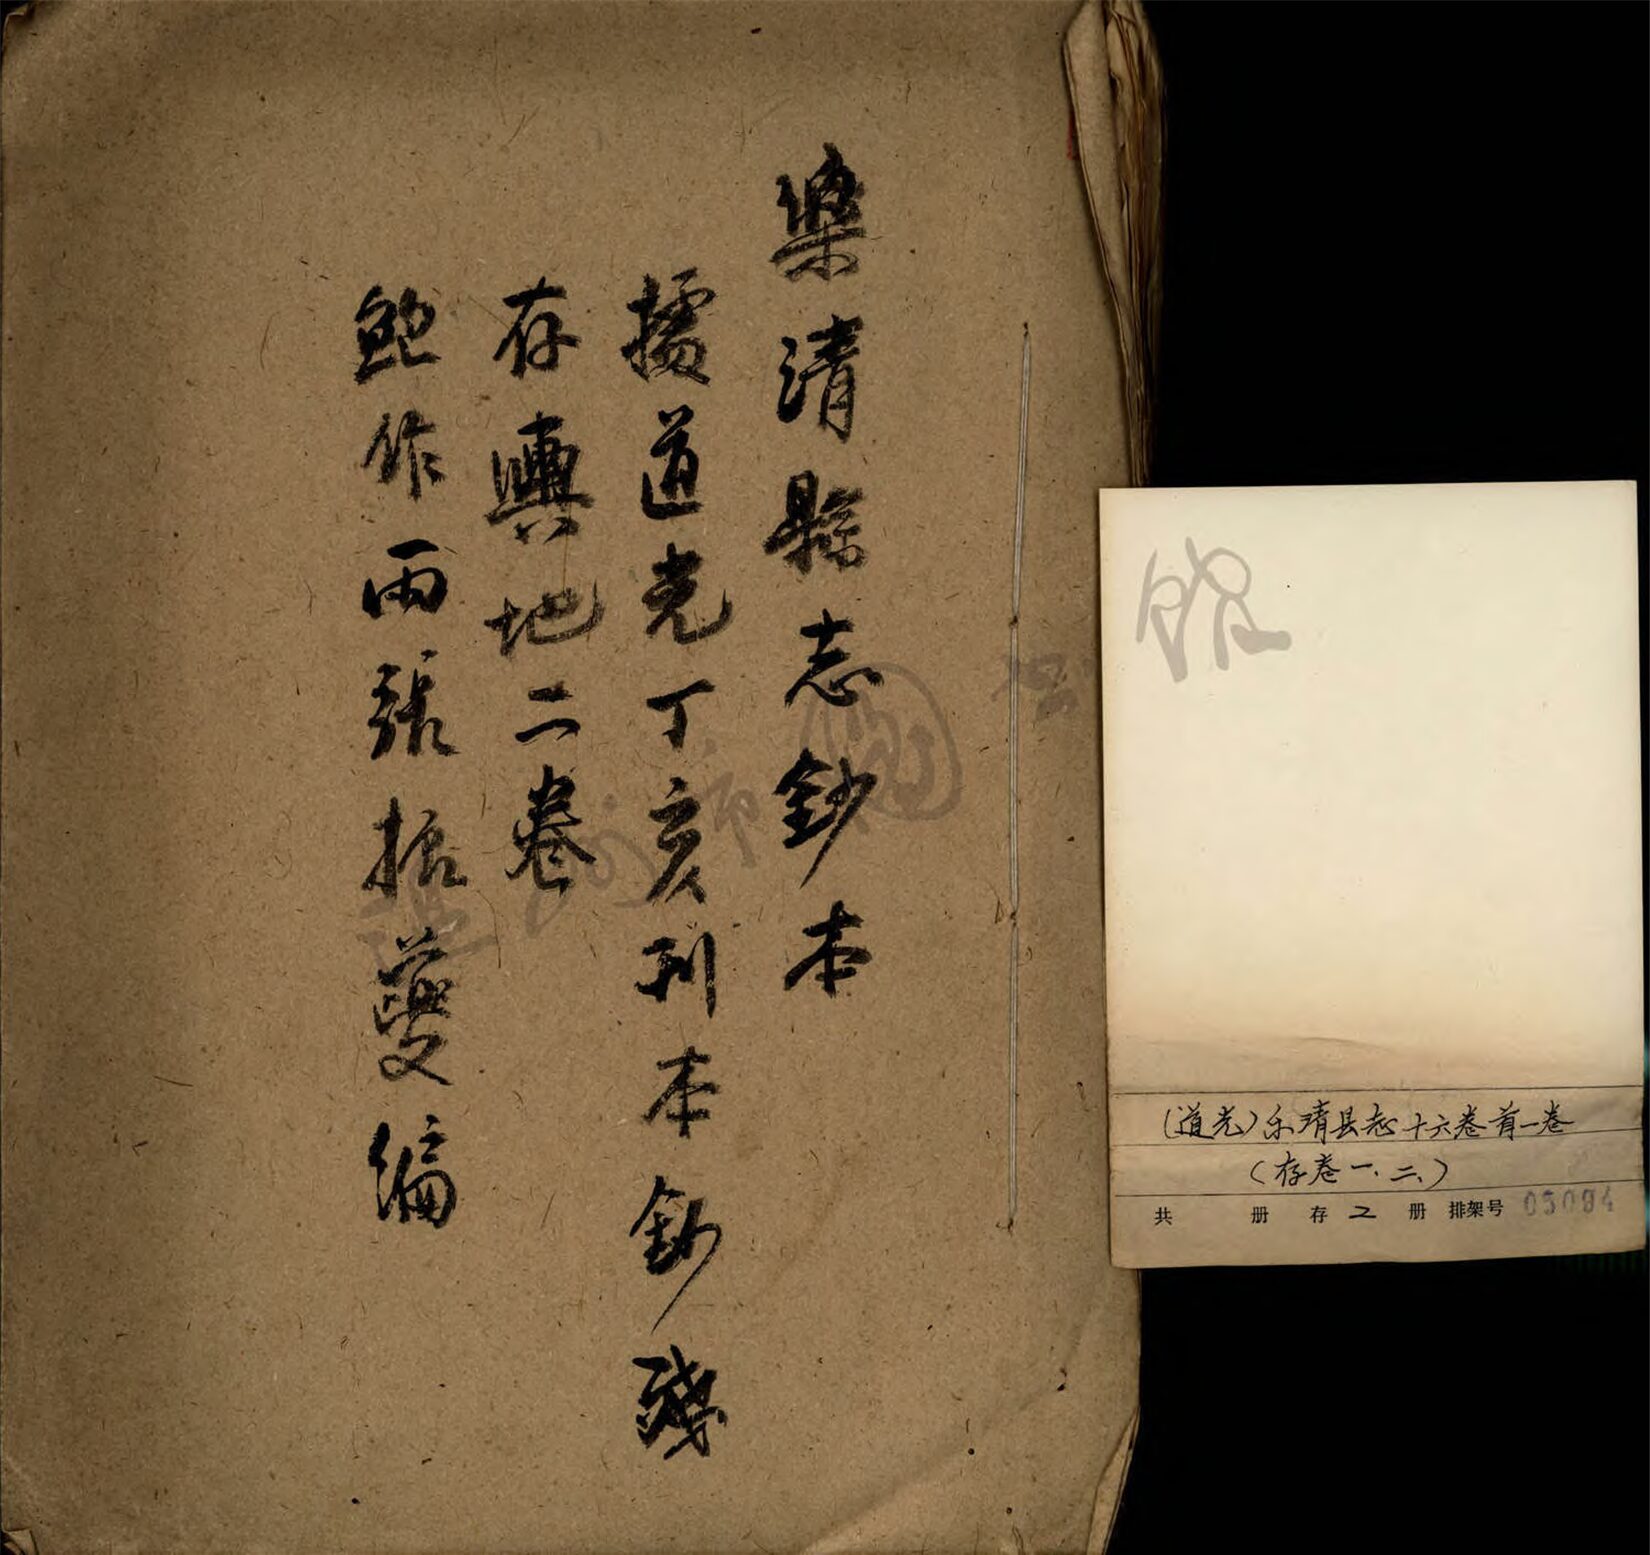 樂清縣志鈔本
據道光丁亥刊本鈔殘
存輿地二卷
鮑作雨張振夔編
(道光)乐清县志十六卷首一卷
(存卷一、二、)
共 册 存 2 册 排架号 05094